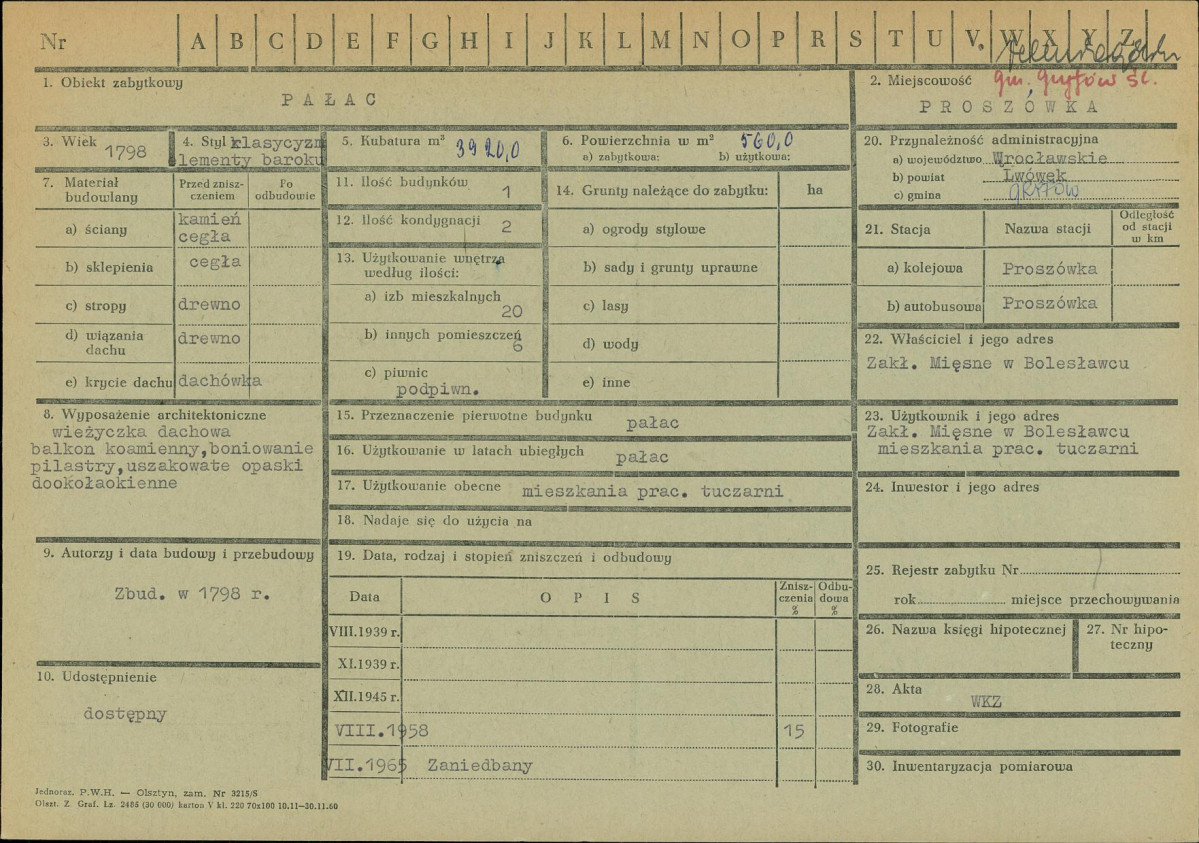 Nr A B C D E F G H I J K L M N O P R S T U V W X Y Z
1. Obiekt zabytkowy
PAŁAC
2. Miejscowość gm. Gryfów Śl.
PROSZÓWKA
3. Wiek 1798
4. Styl klasycyzm
lementy baroku
5. Kubatura m³ 3920,0
6. Powierzchnia w m² 560,0
a) zabytkowa: b) użytkowa:
7. Materiał budowlany
Przed zniszczeniem
Po odbudowie
a) ściany kamień
cegła
b) sklepienia cegła
c) stropy drewno
d) wiązania dachu drewno
e) krycie dachu dachówka
8. Wyposażenie architektoniczne
wieżyczka dachowa
balkon koamienny,boniowanie
pilastry,uszakowate opaski
dookołaokienne
9. Autorzy i data budowy i przebudowy
Zbud. w 1798 r.
10. Udostępnienie
dostępny
11. Ilość budynków 1
12. Ilość kondygnacji 2
13. Użytkowanie wnętrza
według ilości:
a) izb mieszkalnych
20
b) innych pomieszczeń
6
c) piwnic
podpiwn.
14. Grunty należące do zabytku: ha
a) ogrody stylowe
b) sady i grunty uprawne
c) lasy
d) wody
e) inne
15. Przeznaczenie pierwotne budynku pałac
16. Użytkowanie w latach ubiegłych pałac
17. Użytkowanie obecne mieszkania prac. tuczarni
18. Nadaje się do użycia na
19. Data, rodzaj i stopień zniszczeń i odbudowy
Data OPIS Zniszczenia % Odbudowa %
VIII.1939 r.
XI.1939 r.
XII.1945 r.
VIII.1958 15
VII.1965 Zaniedbany
20. Przynależność administracyjna
a) województwo Wrocławskie
b) powiat Lwówek
c) gmina GRYFÓW
21. Stacja Nazwa stacji Odległość od stacji w km
a) kolejowa Proszówka
b) autobusowa Proszówka
22. Właściciel i jego adres
Zakł. Mięsne w Bolesławcu
23. Użytkownik i jego adres
Zakł. Mięsne w Bolesławcu
mieszkania prac. tuczarni
24. Inwestor i jego adres
25. Rejestr zabytku Nr
rok miejsce przechowywania
26. Nazwa księgi hipotecznej
27. Nr hipoteczny
28. Akta
WKZ
29. Fotografie
30. Inwentaryzacja pomiarowa
Jednoraz. P.W.H. — Olsztyn, zam. Nr 3215/S
Olszt. Z. Graf. Lz. 2486 (30 000) karton V kl. 220 70x100 10.11—30.11.60